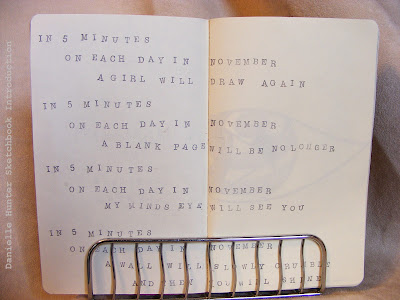 IN 5 MINUTES
ON EACH DAY IN NOVEMBER
A GIRL WILL DRAW AGAIN
IN 5 MINUTES
ON EACH DAY IN NOVEMBER
A BLANK PAGE WILL BE NO LONGER
IN 5 MINUTES
ON EACH DAY IN NOVEMBER
MY MINDS EYE WILL SEE YOU
IN 5 MINUTES
ON EACH DAY IN NOVEMBER
A WALL WILL SLOWLY CRUMBLE
AND THEN YOU WILL SHINE
Danielle Hunter Sketchbook Introduction